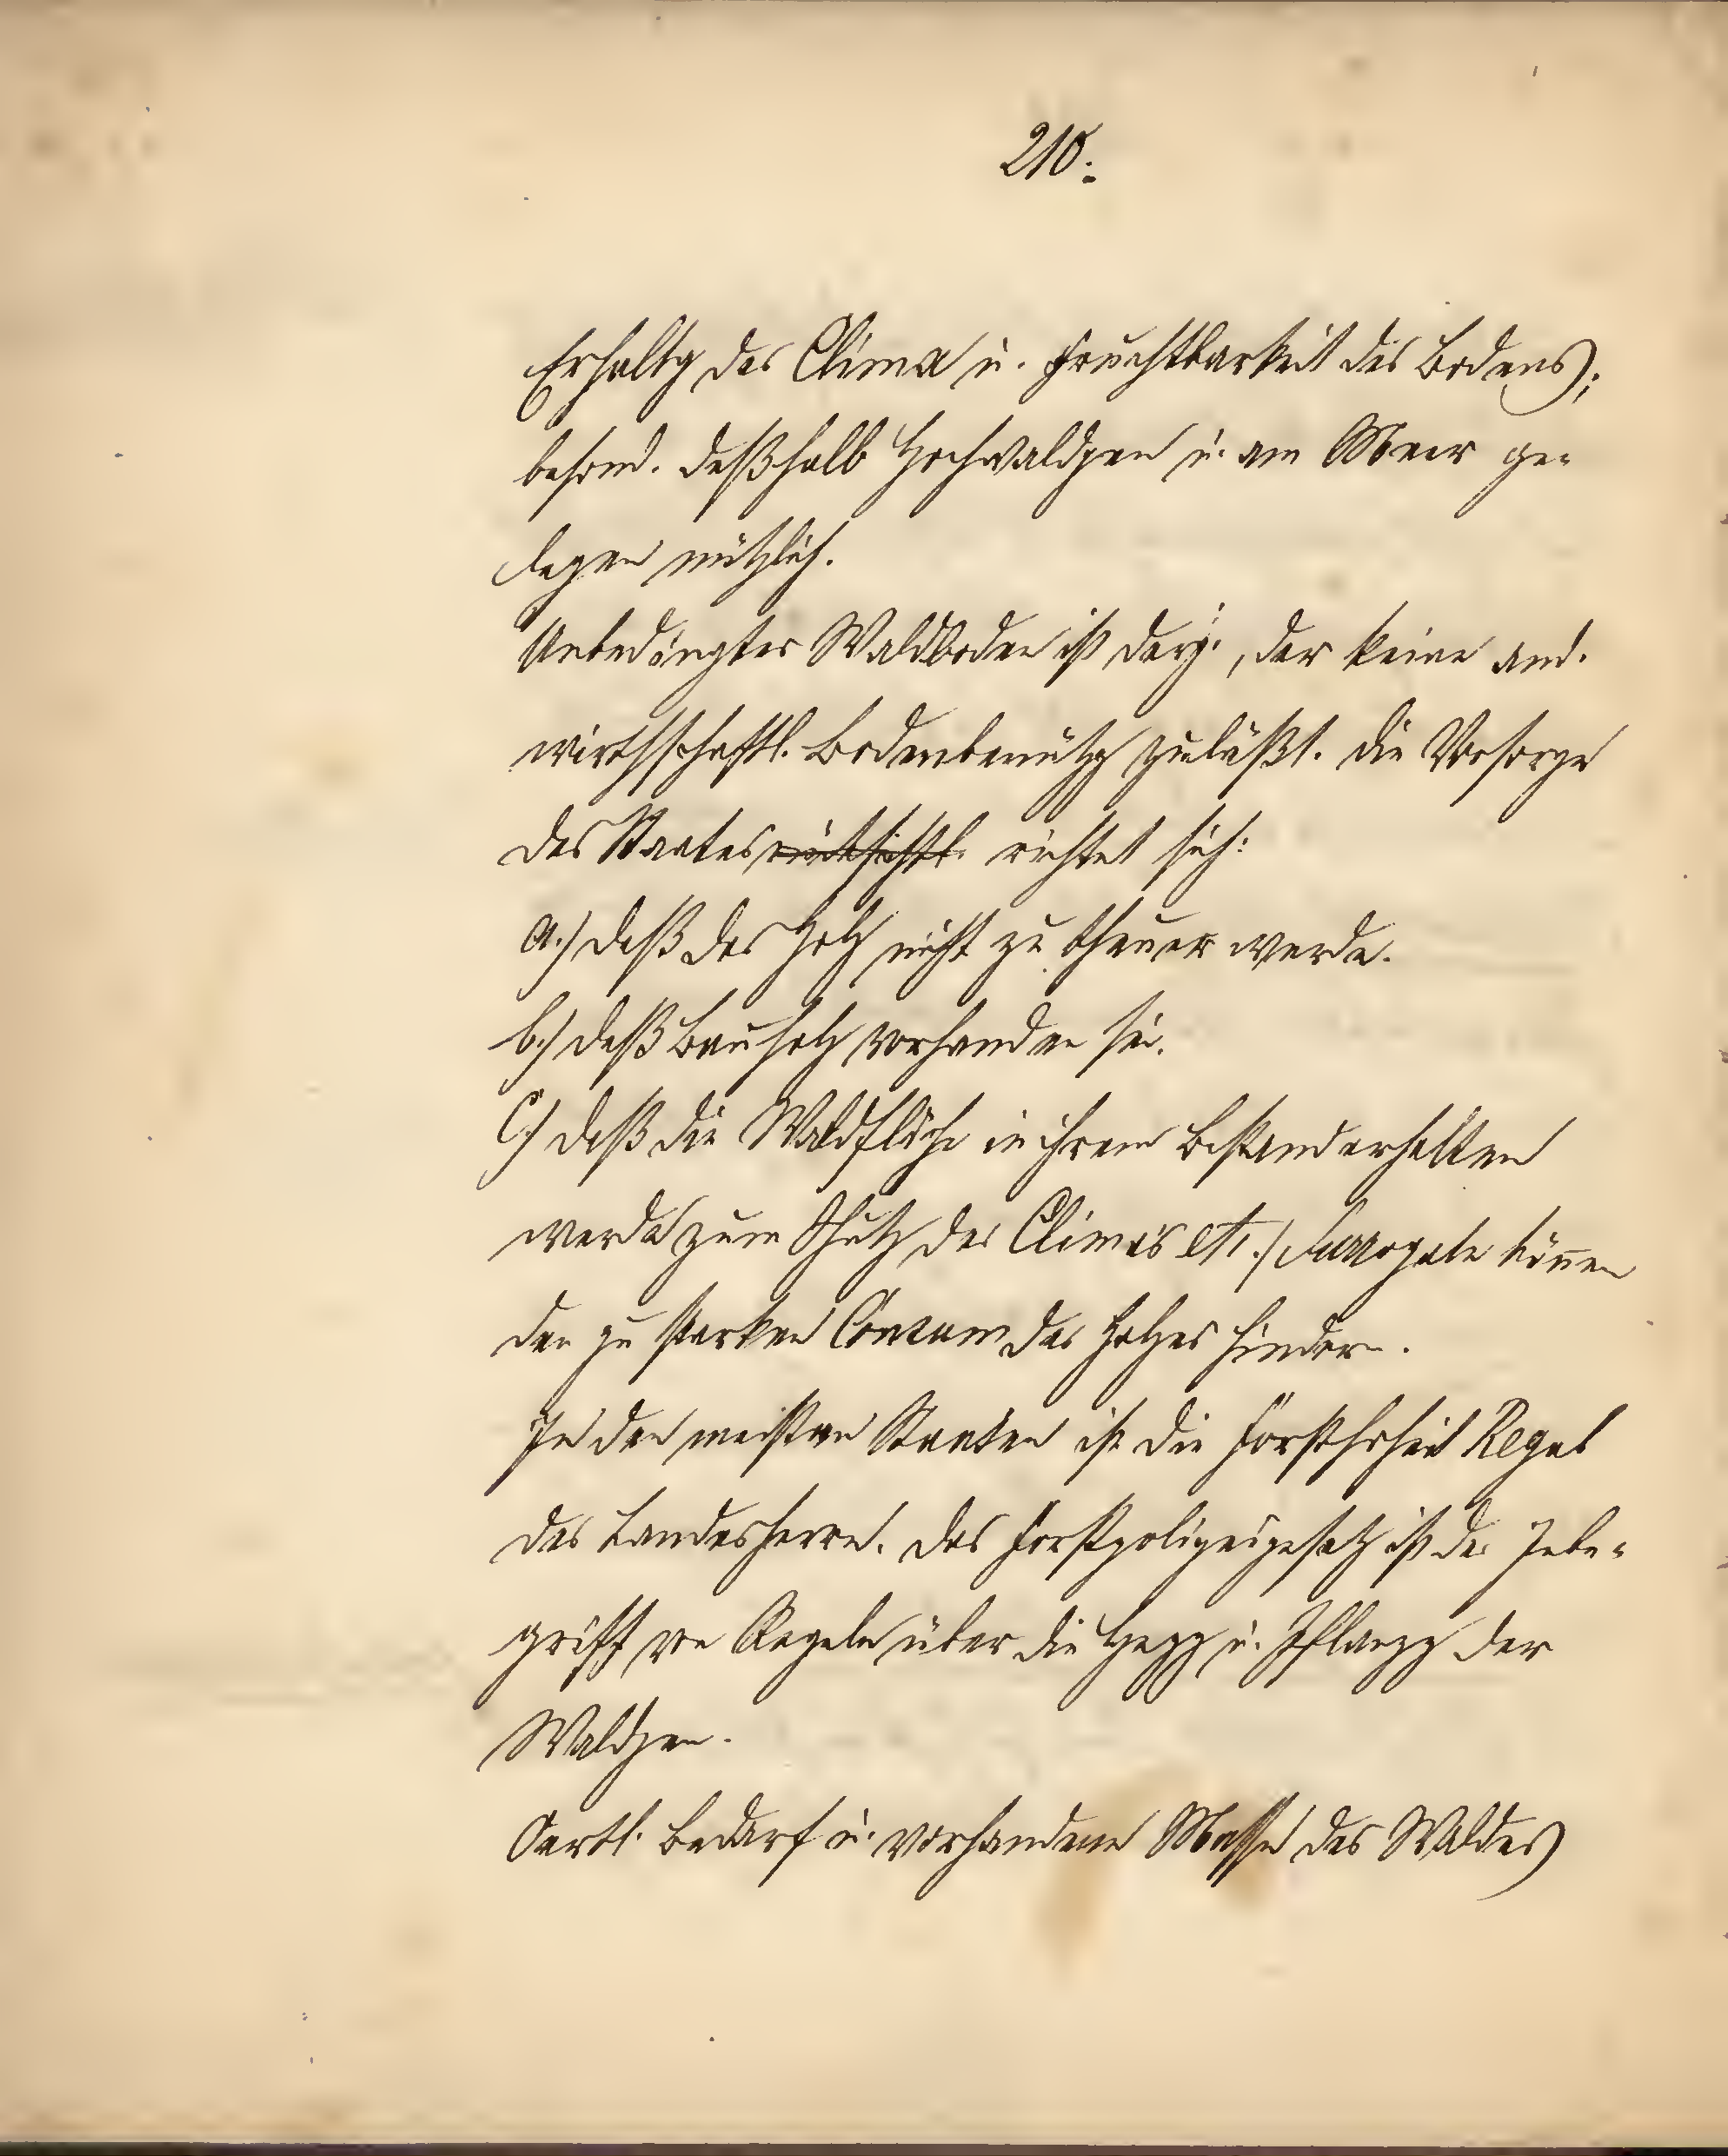 210.
Erhaltg des Clima u. Fruchtbarkeit des Bodens);
besond. deßhalb Hochwaldgen u. am Meer ge-
legen nützlich.
Unbedingter Waldboden ist derj., der keine and.
wirthschaftl. Bodenbenützg zuläßt. Die Vorsorge
des Staates rücksichtl. richtet sich:
a.) daß das Holz nicht zu theuer werde.
b.) daß Bauholz vorhanden sei.
C.) daß die Waldfläche in ihrem Bestand erhalten
werde zum Schutz des Clima's etc.) Surrogate könen
den zu starken Consum des Holzes hindern.
In den meisten Staaten ist die Forsthoheit Regal
des Landesherrn. Das Forstpolizeigesetz ist der Inbe-
griff von Regeln über die Hegg u. Pflanzg der
Waldgen.
Oertl. Bedarf u. vorhandene Masse des Waldes